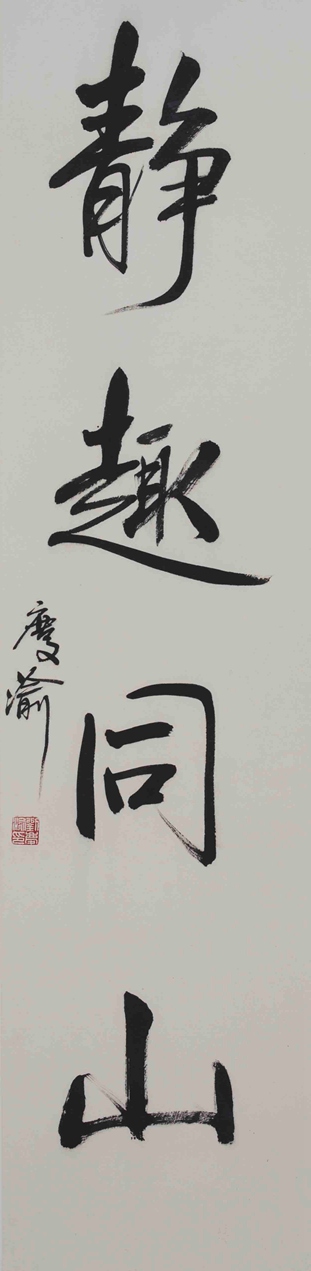 静趣同山
庆渝